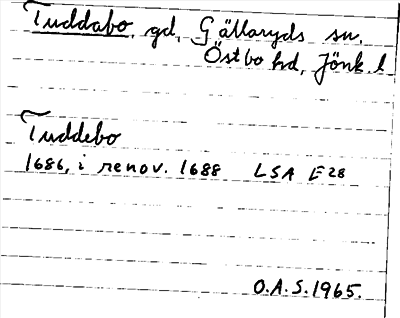 Tuddabo, gd, Gällaryds sn.
Östbo hd, Jönk. l
Tuddebo
1686, i renov. 1688 LSA E28
O.A.S. 1965.